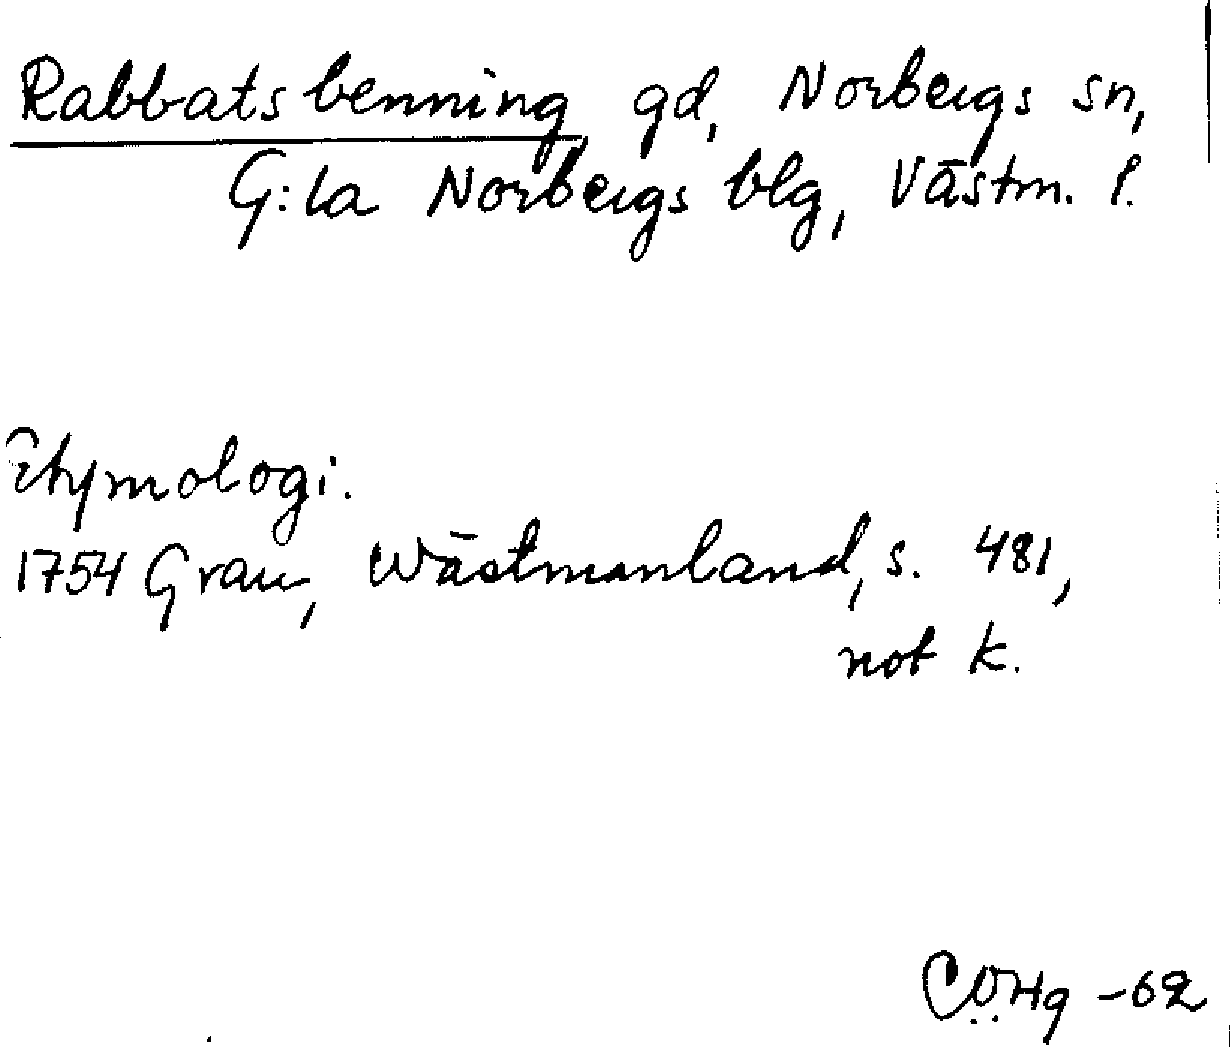 Rabbatsbenning gd, Norbergs sn,
G:la Norbergs blg, Västm. l.
Etymologi.
1754 Grau, Wästmanland, s. 481,
not k.
CÖHg -62